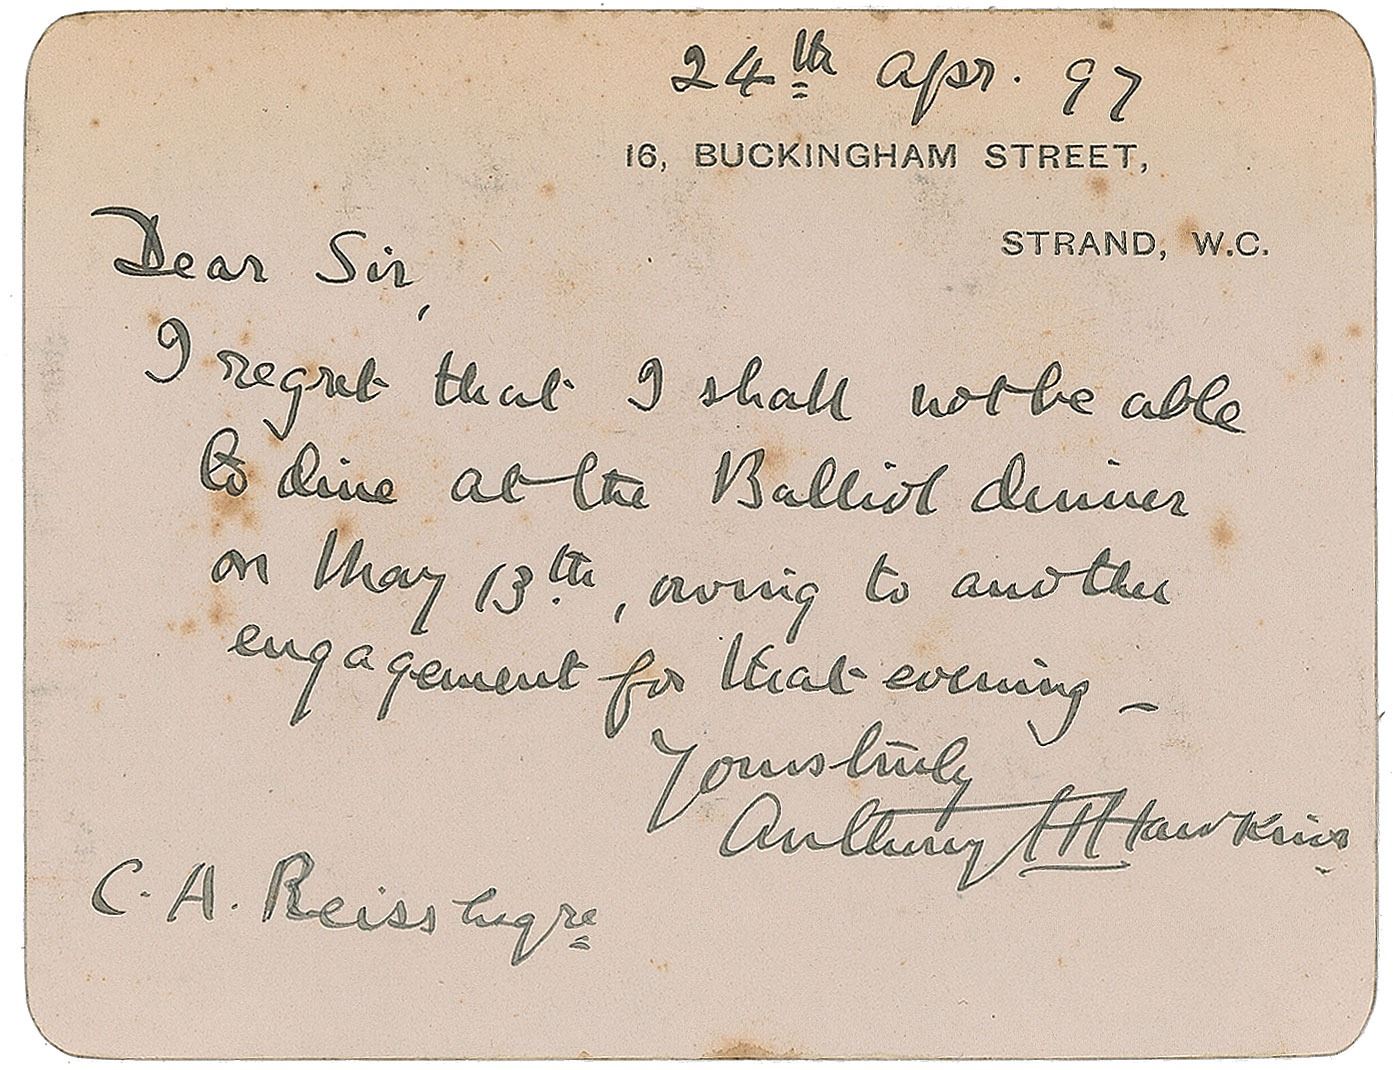 24th Apr. 97
16, BUCKINGHAM STREET,
STRAND, W.C.
Dear Sir,
I regret that I shall not be able
to dine at the Balliol dinner
on May 13th, owing to another
engagement for that evening –
Yours truly
Anthony H Hawkins
C. A. Reiss Esqre